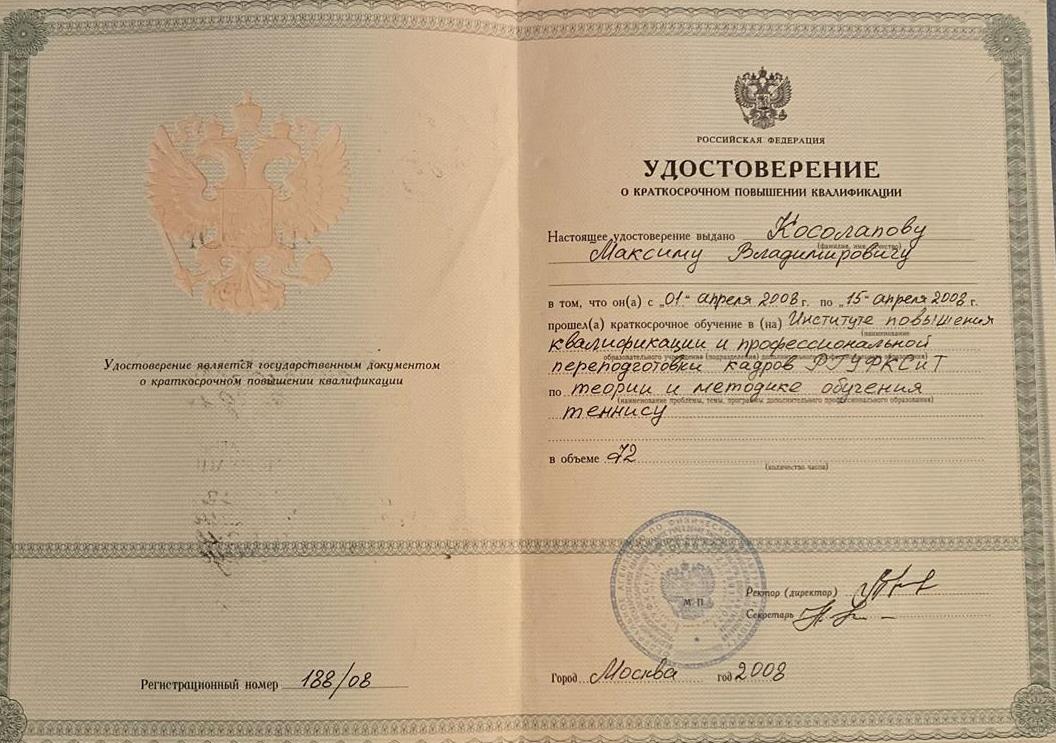 Удостоверение является государственным документом
о краткосрочном повышении квалификации
Регистрационный номер 188/08
РОССИЙСКАЯ ФЕДЕРАЦИЯ
УДОСТОВЕРЕНИЕ
О КРАТКОСРОЧНОМ ПОВЫШЕНИИ КВАЛИФИКАЦИИ
Настоящее удостоверение выдано Косолапову
(фамилия, имя, отчество)
Максиму Владимировичу
в том, что он(а) с „01“ апреля 2008 г. по „15“ апреля 2008 г.
прошел(а) краткосрочное обучение в (на) Институте повышения
(наименование
квалификации и профессиональной
образовательного учреждения (подразделения) дополнительного
переподготовки кадров РГУФКСиТ
по теории и методике обучения
(наименование проблемы, темы, программы дополнительного профессионального образования)
теннису
в объеме 72
(количество часов)
М П
Ректор (директор)
Секретарь
Город Москва год 2008